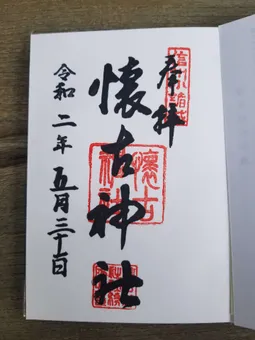 信州小諸城
奉拝
懐古神社
懐古神社
令和二年五月三十日